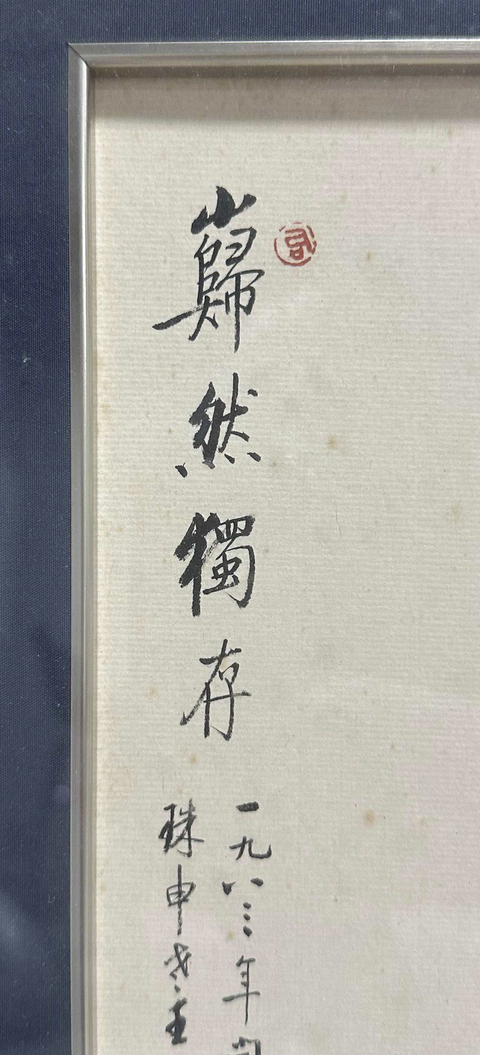 巋然獨存
一九八三年
珠申